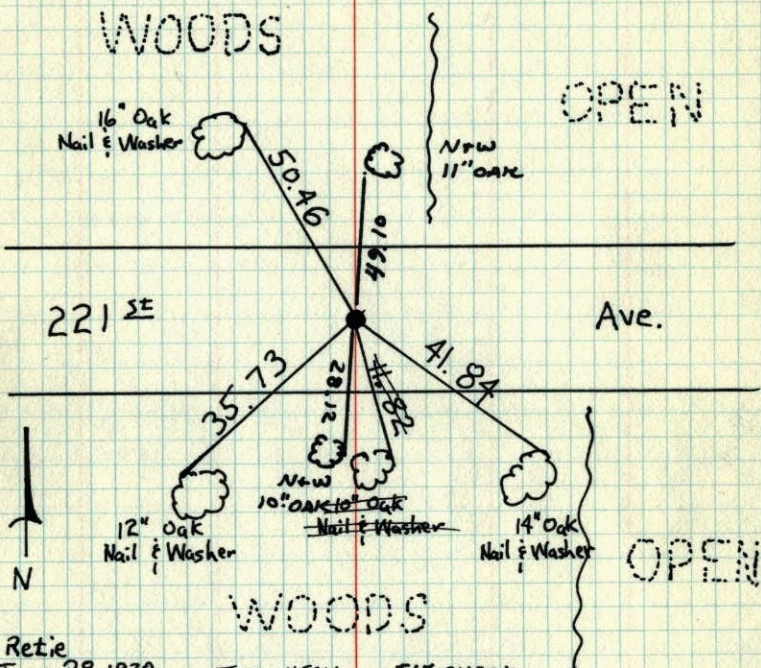 WOODS
OPEN
16" Oak
Nail & Washer
N+W
11" OAK
50.46
49.10
221 st
Ave.
35.73
21.82
41.84
N+W
10" OAK 10" Oak
Nail & Washer
12" Oak
Nail & Washer
14" Oak
Nail & Washer
N
OPEN
WOODS
Retie